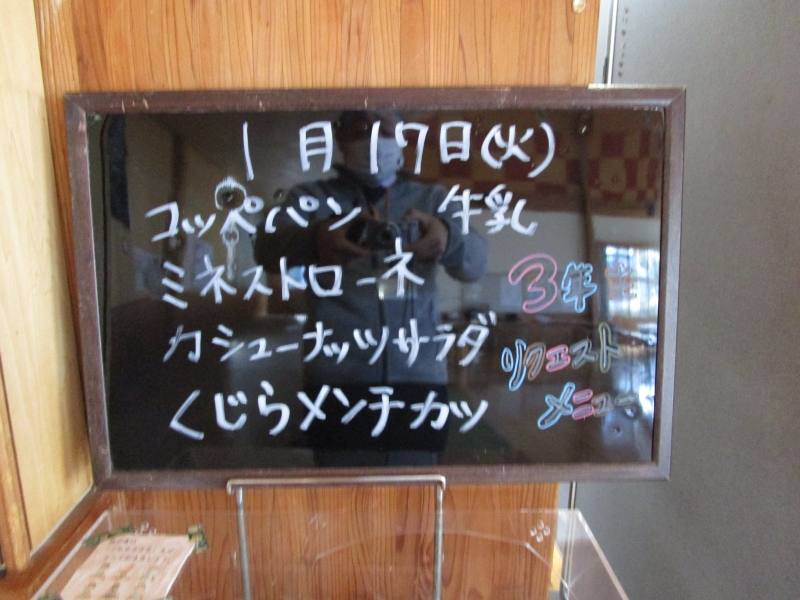 1月17日(火)
コッペパン 牛乳
ミネストローネ
カシューナッツサラダ
くじらメンチカツ
3年生
リクエスト
メニュー